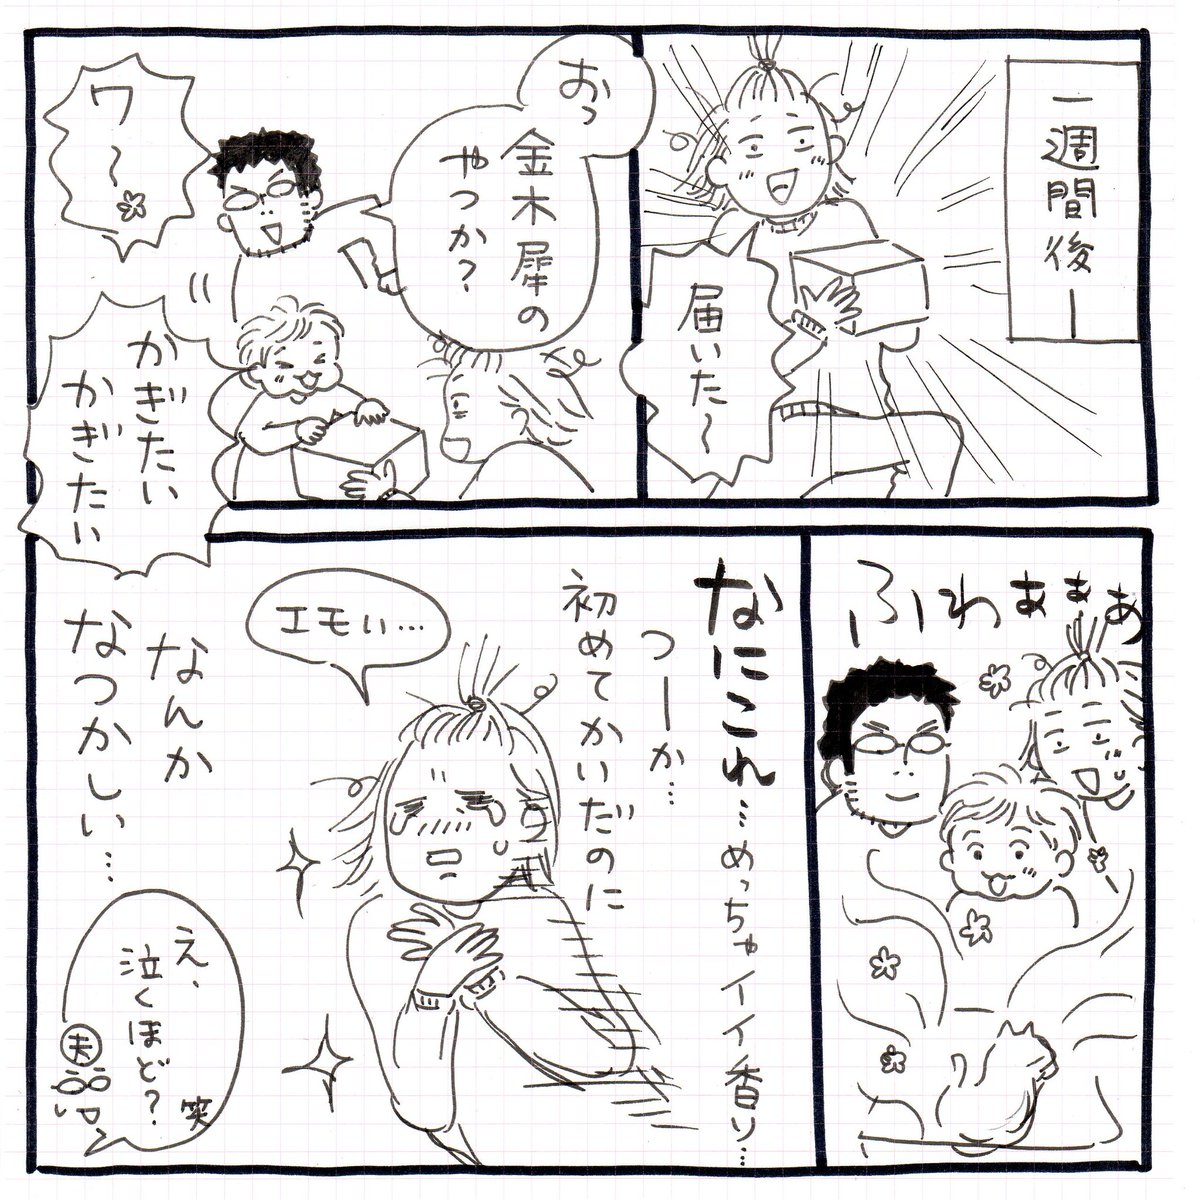 一週間後ー
届いた〜
おっ
金木犀の
やつか?
ワ〜
かぎたい
かぎたい
ふわぁぁぁ
なにこれ…めっちゃイイ香り…
つーか…
初めてかいだのに
エモい…
なんか
なつかしい…
え、
泣くほど?
笑
夫